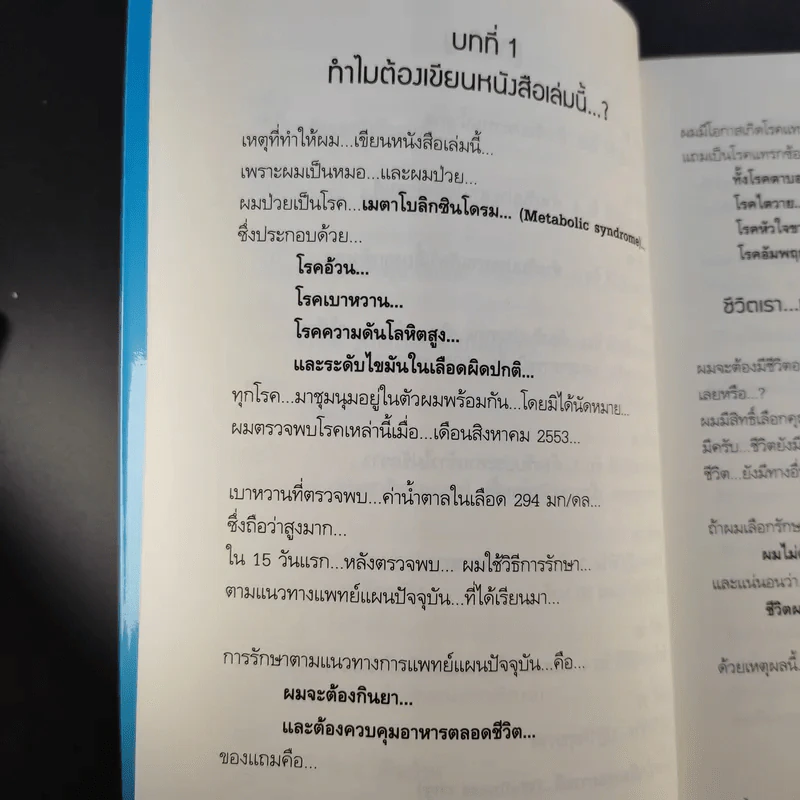 บทที่ 1
ทำไมต้องเขียนหนังสือเล่มนี้...?
เหตุที่ทำให้ผม...เขียนหนังสือเล่มนี้...
เพราะผมเป็นหมอ...และผมป่วย...
ผมป่วยเป็นโรค...เมตาโบลิกซินโดรม... (Metabolic syndrome)...
ซึ่งประกอบด้วย...
โรคอ้วน...
โรคเบาหวาน...
โรคความดันโลหิตสูง...
และระดับไขมันในเลือดผิดปกติ...
ทุกโรค...มาชุมนุมอยู่ในตัวผมพร้อมกัน...โดยมิได้นัดหมาย...
ผมตรวจพบโรคเหล่านี้เมื่อ...เดือนสิงหาคม 2553...
เบาหวานที่ตรวจพบ...ค่าน้ำตาลในเลือด 294 มก/ดล...
ซึ่งถือว่าสูงมาก...
ใน 15 วันแรก...หลังตรวจพบ... ผมใช้วิธีการรักษา...
ตามแนวทางแพทย์แผนปัจจุบัน...ที่ได้เรียนมา...
การรักษาตามแนวทางการแพทย์แผนปัจจุบัน...คือ...
ผมจะต้องกินยา...
และต้องควบคุมอาหารตลอดชีวิต...
ของแถมคือ...
ผมมีโอกาสเกิดโรคแทร
แถมเป็นโรคแทรกซ้อ
ทั้งโรคตาบอ
โรคไตวาย...
โรคหัวใจขา
โรคอัมพฤก
ชีวิตเรา...
ผมจะต้องมีชีวิตอ
เลยหรือ...?
ผมมีสิทธิ์เลือกคุ
มีครับ...ชีวิตยังมี
ชีวิต...ยังมีทางอื่
ถ้าผมเลือกรักษ
ผมไม่
และแน่นอนว่า
ชีวิตผ
ด้วยเหตุผลนี้.